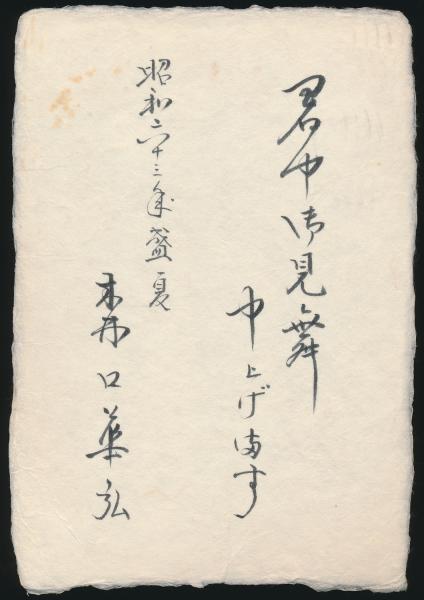 暑中御見舞
申上げます
昭和六十三年盛夏
森口華弘